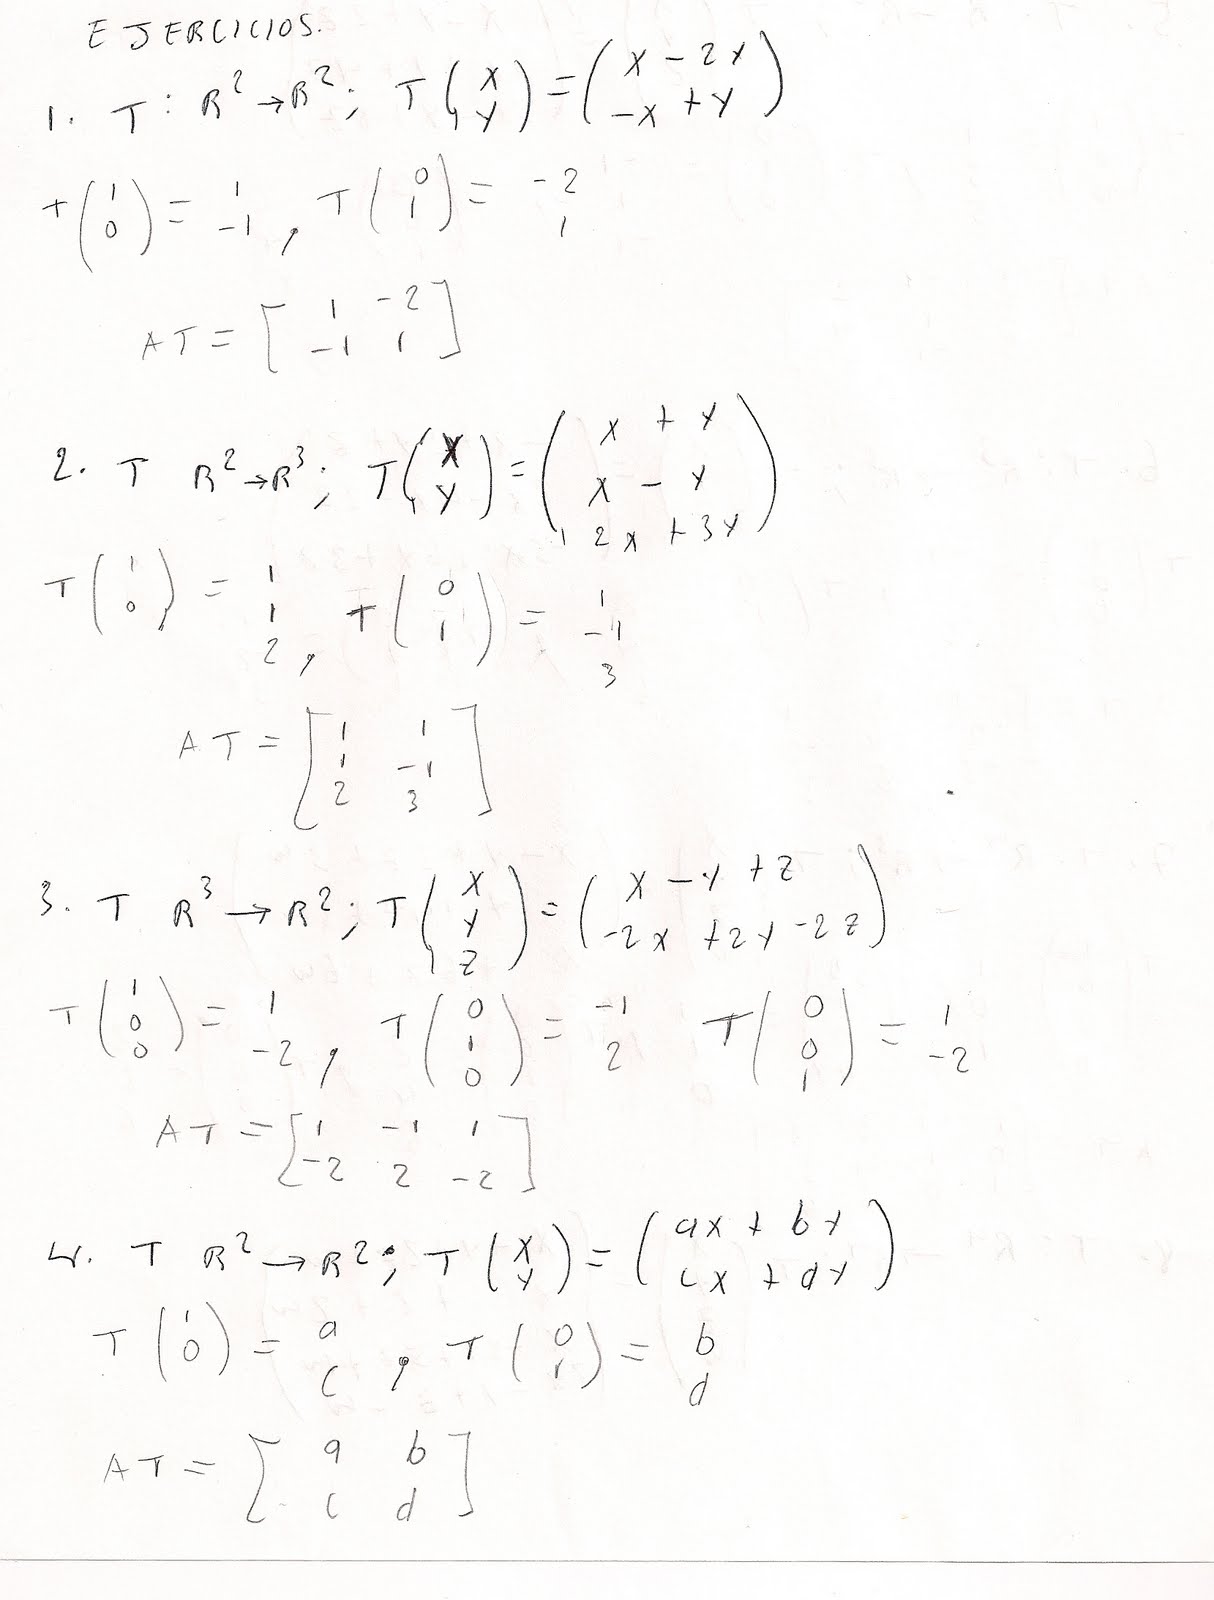 EJERCICIOS.
1. T: R² → R²; T(x y) = (x - 2y
-x + y)
T(1 0) = 1 -1, T(0 1) = -2 1
AT = [1 -2
-1 1]
2. T R² → R³; T(x y) = (x + y
x - y
2x + 3y)
T(1 0) = 1 1 2, T(0 1) = 1 -1 3
AT = [1 1
1 -1
2 3]
3. T R³ → R²; T(x y z) = (x - y + z
-2x + 2y - 2z)
T(1 0 0) = 1 -2, T(0 1 0) = -1 2 T(0 0 1) = 1 -2
AT = [1 -1 1
-2 2 -2]
4. T R² → R²; T(x y) = (ax + by
cx + dy)
T(1 0) = a c, T(0 1) = b d
AT = [a b
c d]